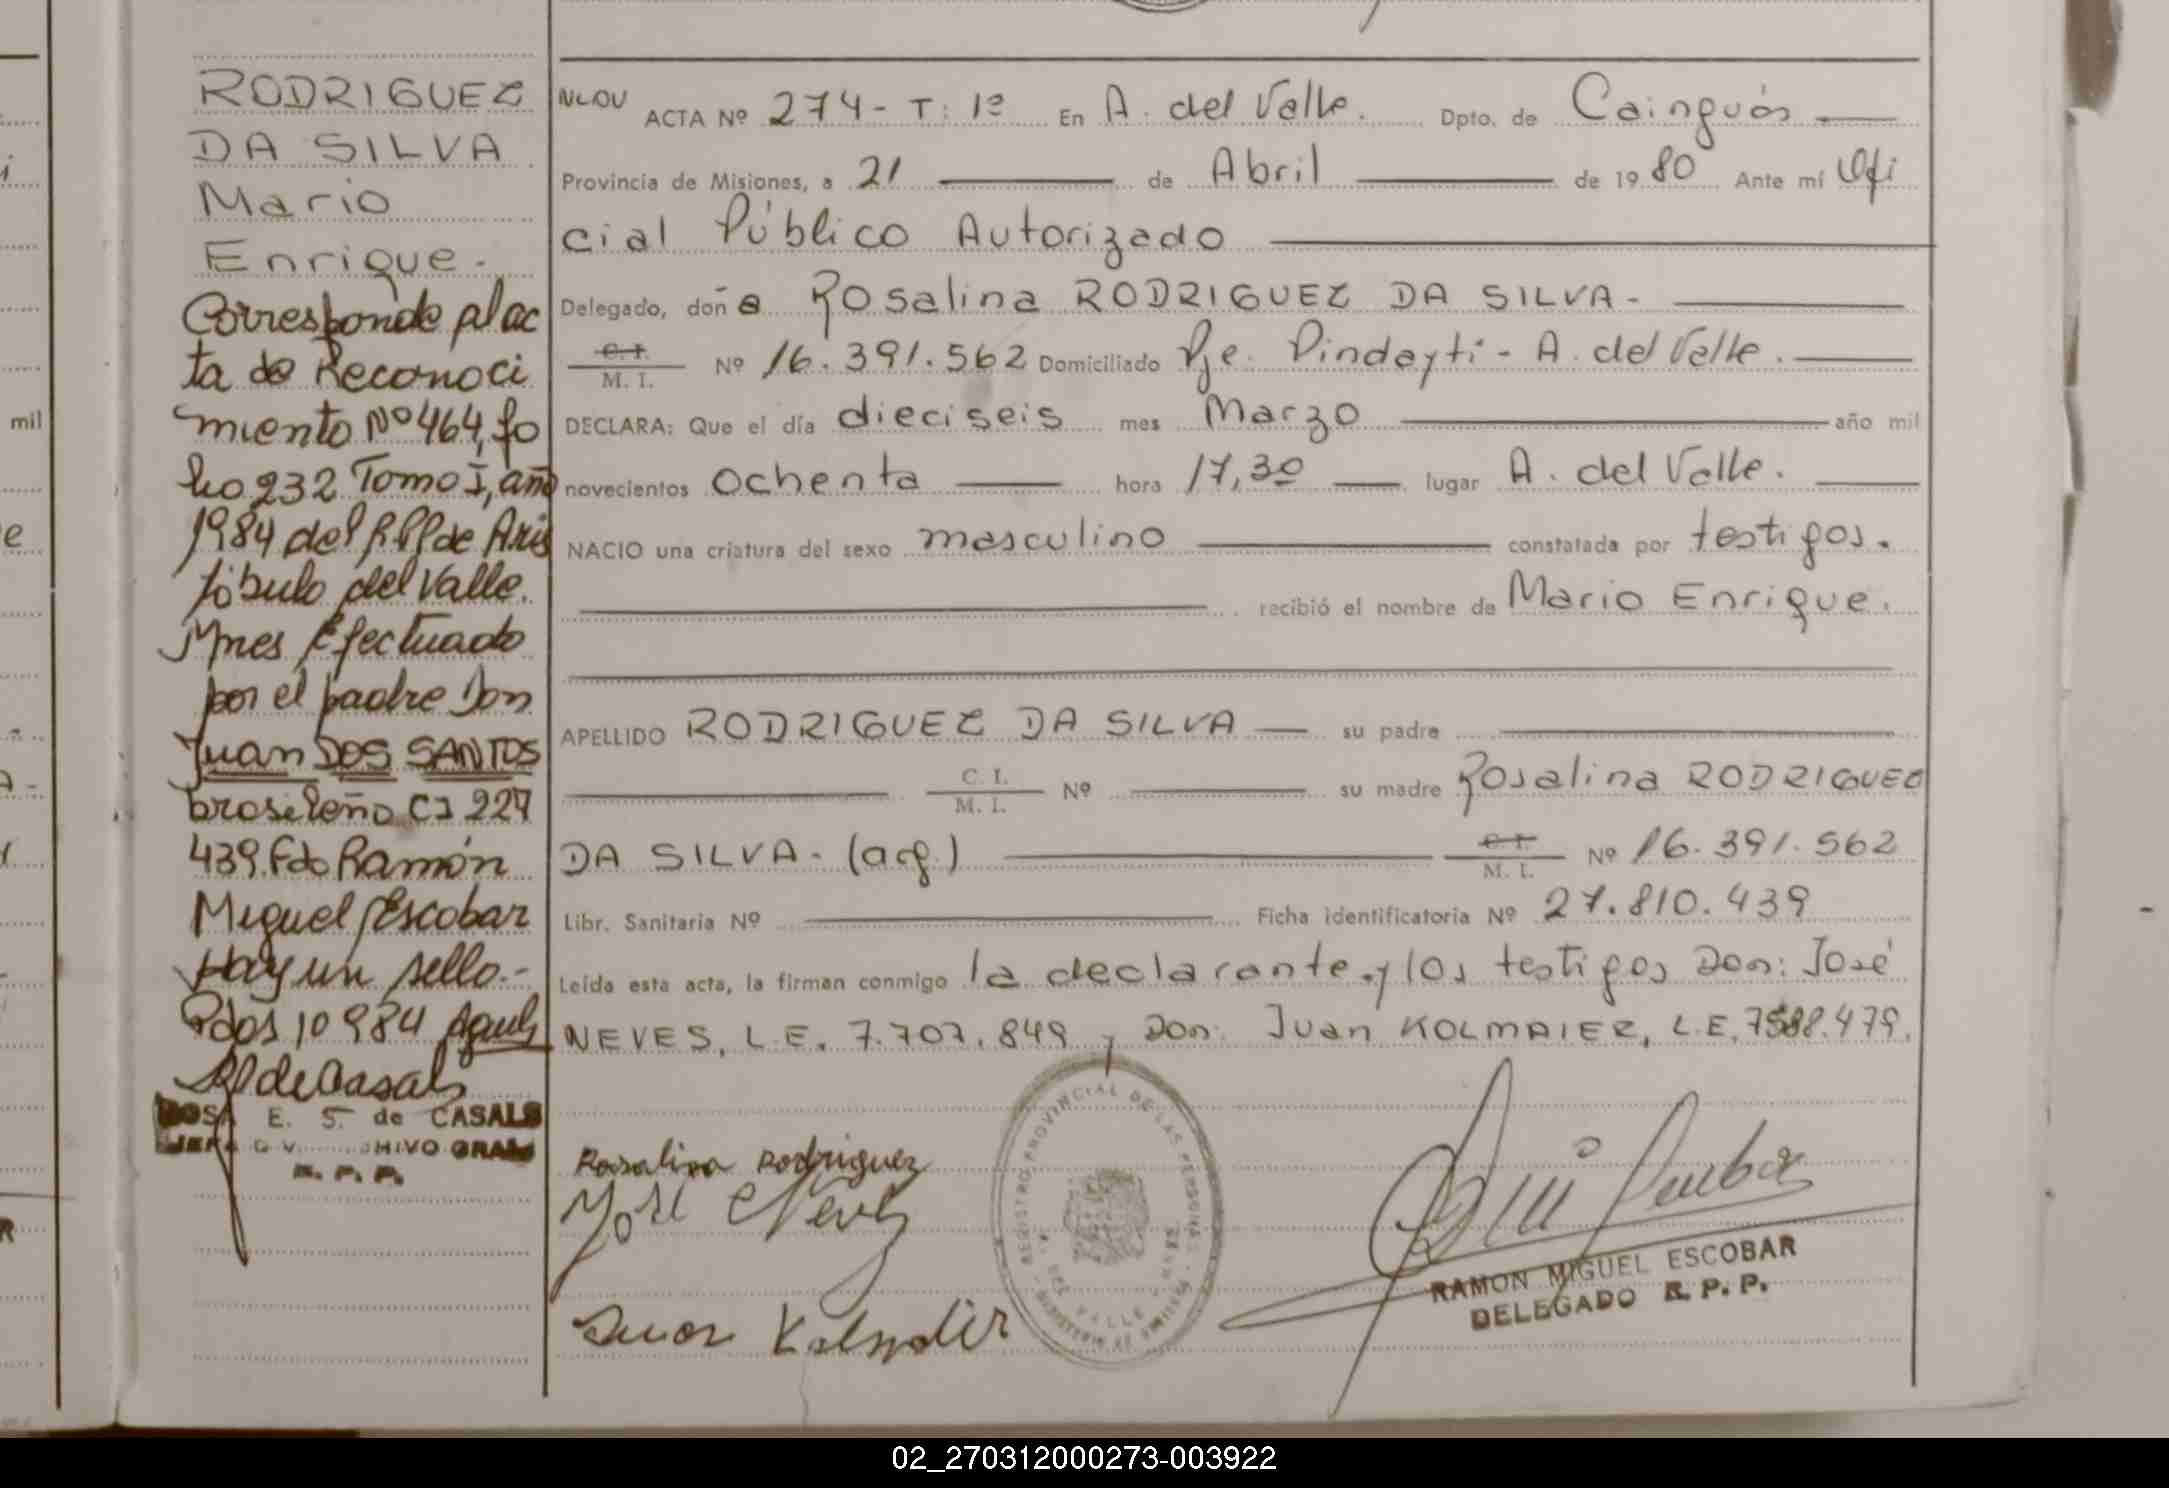 RODRIGUEZ
DA SILVA
Mario
Enrique.-
Corresponde al ac
ta de Reconoci
miento Nº 464, fo
lio 232 Tomo I, año
1984 del R.P.P de Aris
tóbulo del Valle.
Mnes, Efectuado
por el padre Don
Juan DOS SANTOS
brasileño CI 227
439. Fdo Ramón
Miguel Escobar
Hay un sello.-
Pdos 10 984
E. S. de CASALS
R. P. P.
ACTA Nº 274- T: 1º En A. del Valle. Dpto. de Cainguás
Provincia de Misiones, a 21 de Abril de 1980 Ante mí Ofi
cial Público Autorizado
Delegado, doña Rosalina RODRIGUEZ DA SILVA-
C. I.
M. I. Nº 16.391.562 Domiciliado Pje. Pindayti - A. del Valle.
DECLARA: Que el día dieciseis mes Marzo año mil
novecientos ochenta hora 17,30 lugar A. del Valle.
NACIO una criatura del sexo masculino constatada por testigos.
recibió el nombre de Mario Enrique.
APELLIDO RODRIGUEZ DA SILVA su padre
C. I.
M. I. Nº su madre Rosalina RODRIGUEZ
DA SILVA- (arg.) C. I.
M. I. Nº 16.391.562
Libr. Sanitaria Nº Ficha identificatoria Nº 27.810.439
Leída esta acta, la firman conmigo la declarante y los testigos Don: José
NEVES, L.E. 7.707.849 y Don: Juan KOLMAIER, L.E. 7588.479.
Rosalina Rodriguez
José Neves
Juan
REGISTRO PROVINCIAL DE LAS PERSONAS
DEL VALLE
RAMON MIGUEL ESCOBAR
DELEGADO R. P. P.
mil
02_270312000273-003922